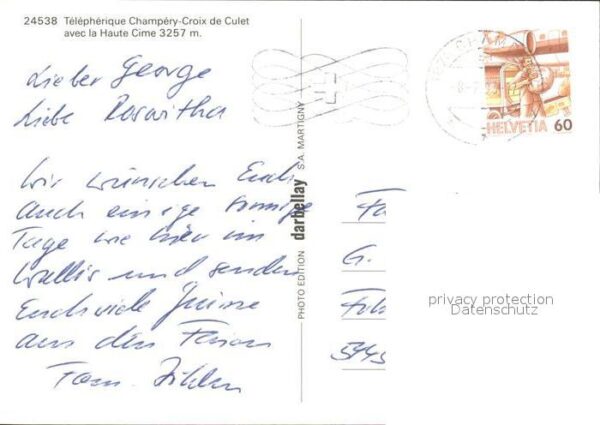 24538 Téléphérique Champéry-Croix de Culet
avec la Haute Cime 3257 m.
Lieber George
Liebe Roswitha
Wir wünschen Euch
auch einige sonnige
Tage wie hier im
Wallis und senden
Euch viele Grüsse
aus den Ferien
Fam.
PHOTO EDITION darbellay S.A. MARTIGNY
HELVETIA 60
Fa
G.
privacy protection
Datenschutz